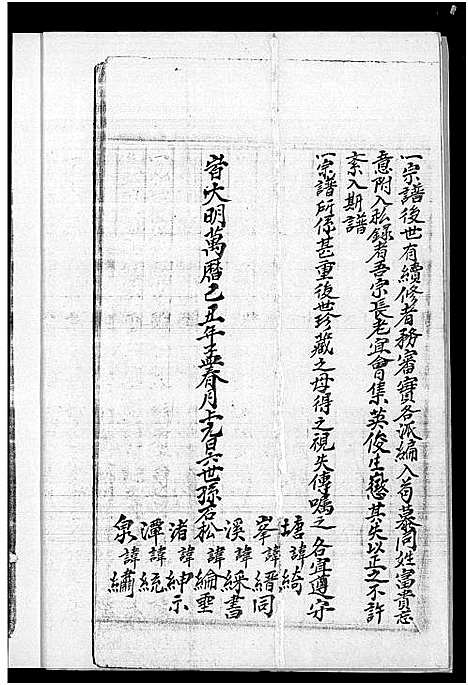 一宗譜後世有續修者務審實各派編入茍慕同姓富貴恣
意附入私錄者吾宗長老宜會集英俊生懲其失以正之不許
紊入斯譜
一宗譜所係甚重後世珍藏之毋得之視失傳囑之各宜遵守
旹大明萬曆己丑年孟春月十六世孫石松
塘諱綺
峯諱縉同
溪諱綵書
諱綸垂
渚諱紳示
潭諱統
泉諱繡